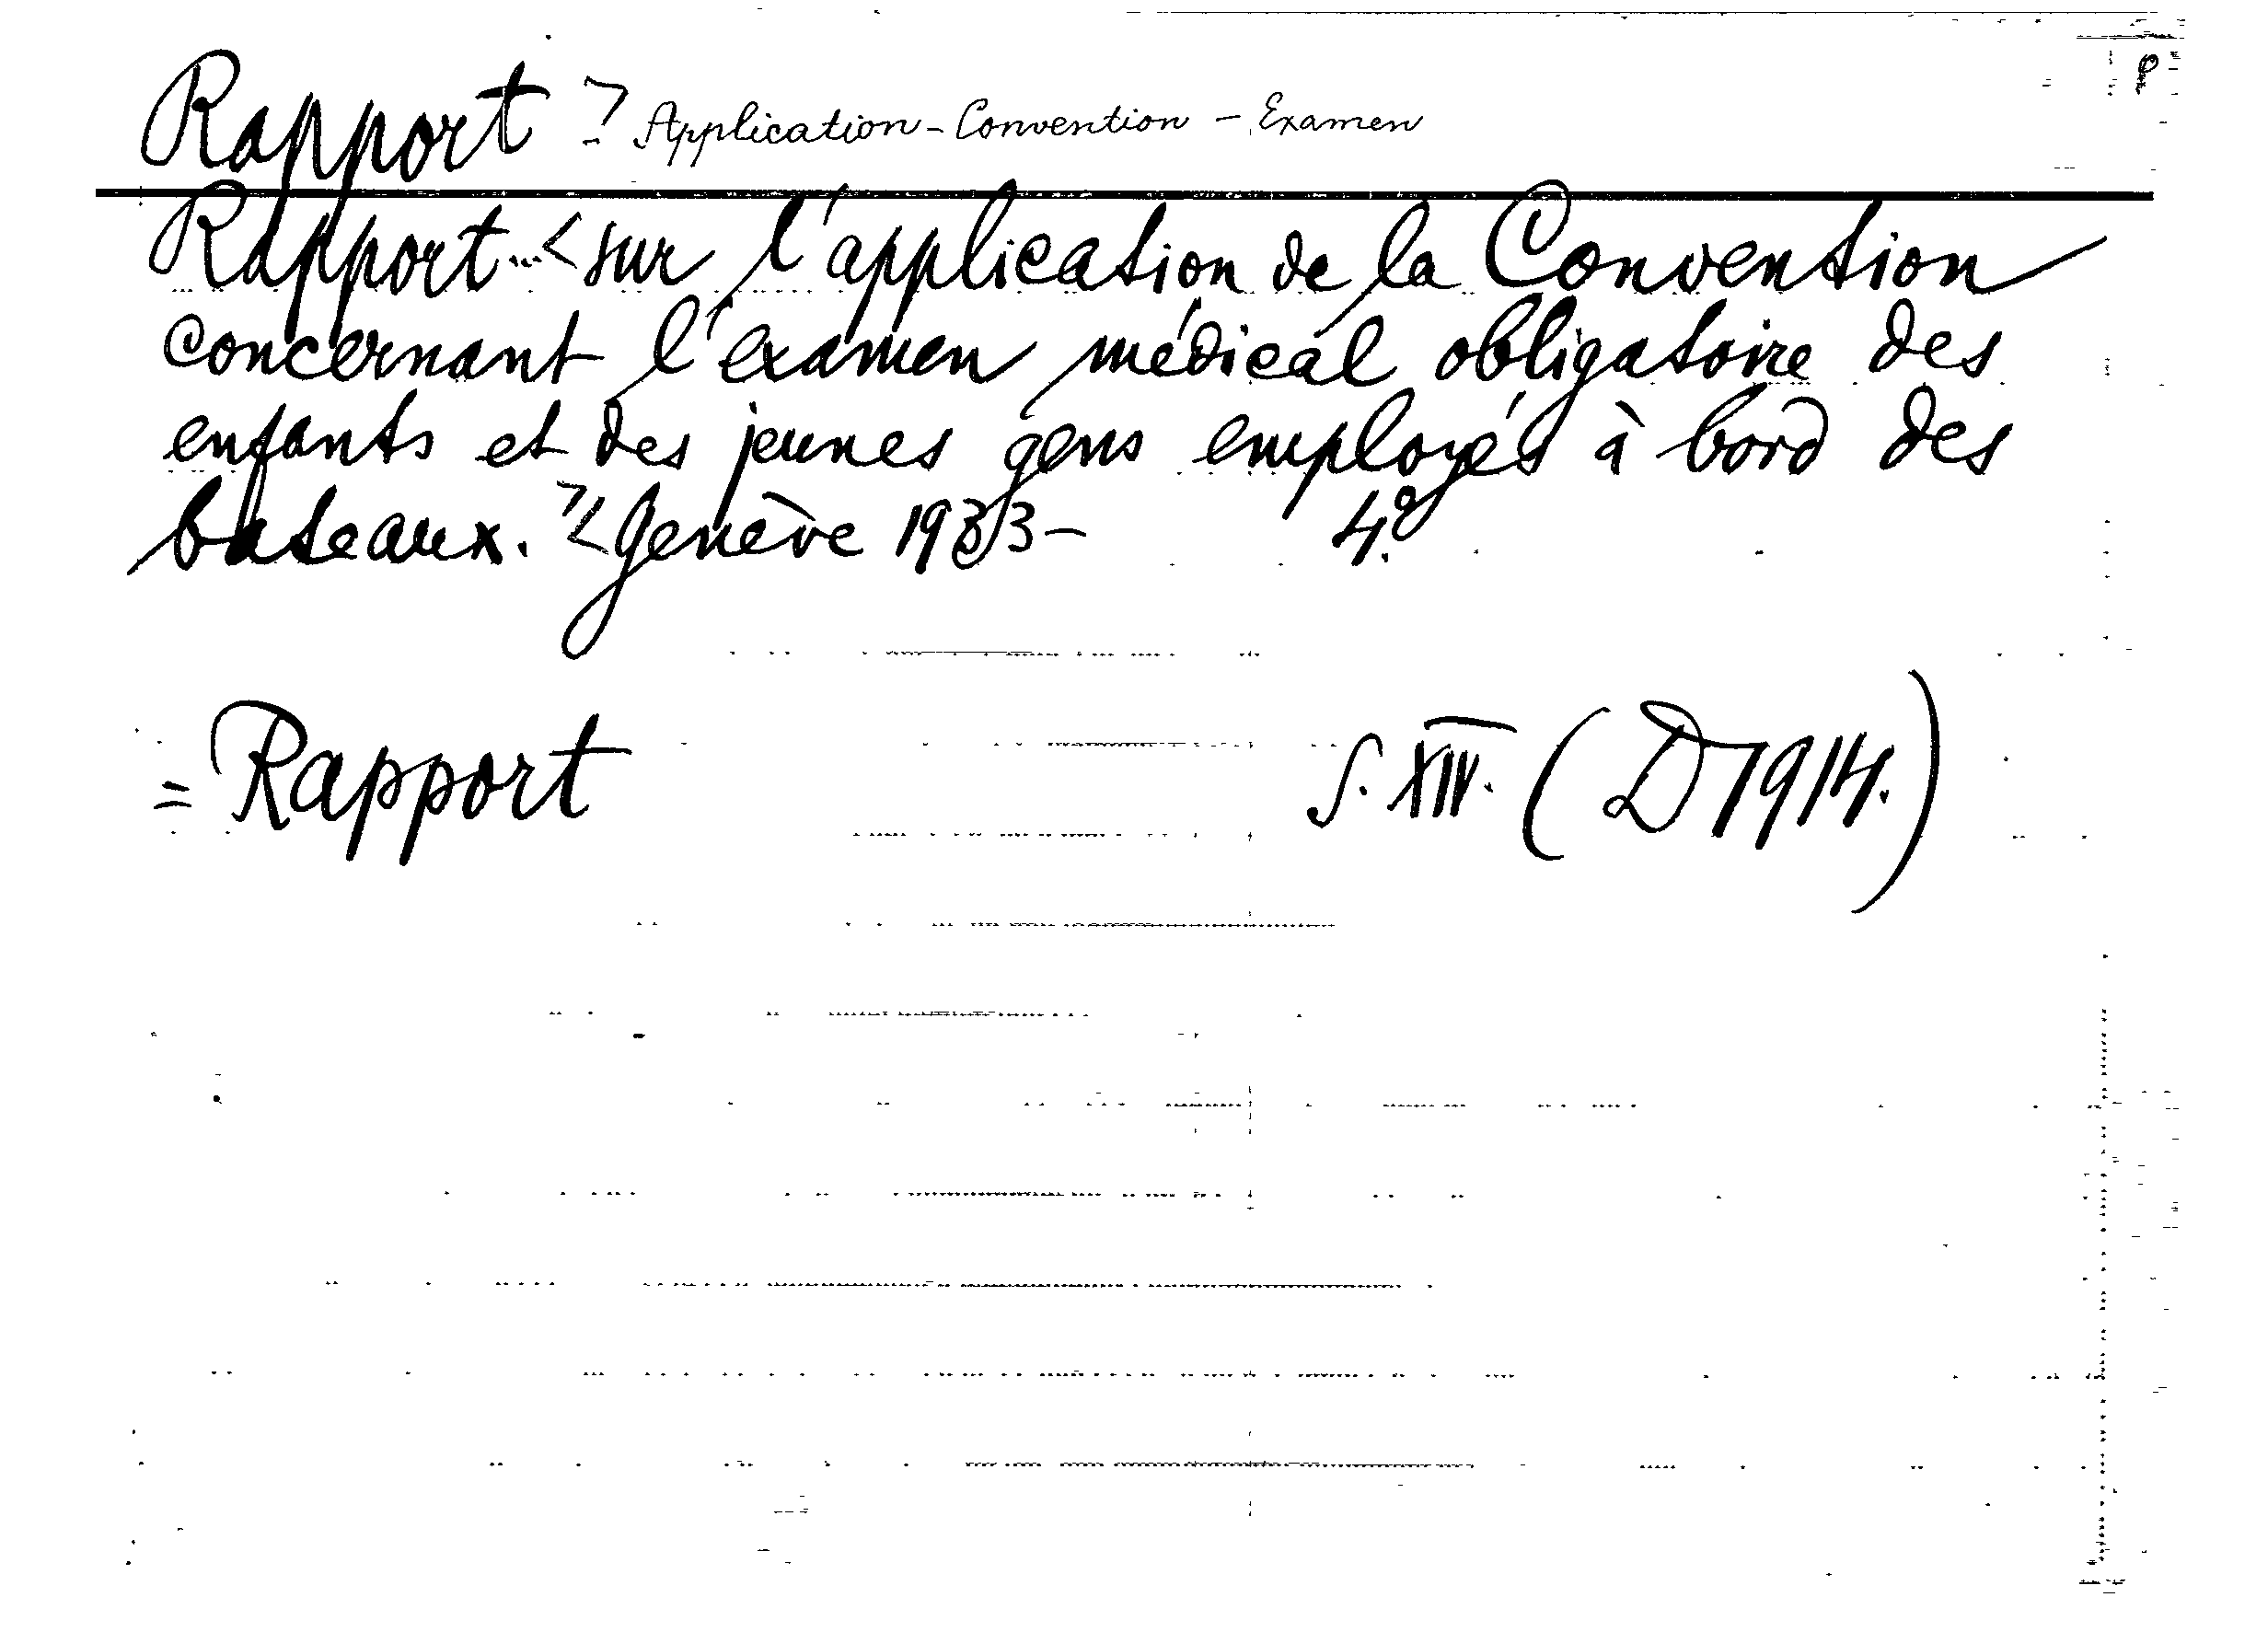 P
Rapport > Application - Convention - Examen
Rapport...< sur l'application de la Convention
concernant l'examen médical obligatoire des
enfants et des jeunes gens employés à bord des
bateaux. >< Genève 1933- 4º
= Rapport S. XIV. (D 1914.)